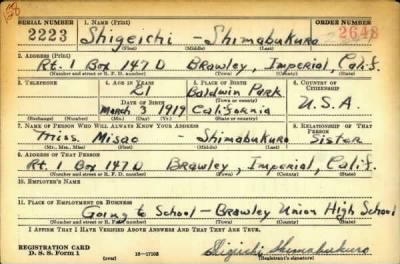 SERIAL NUMBER 1. NAME (Print) ORDER NUMBER
2223 Shigeichi – Shimabukuro 2648
(First) (Middle) (Last)
2. ADDRESS (Print)
Rt. 1 Box 147 D Brawley, Imperial, Calif.
(Number and street or R. F. D. number) (Town) (County) (State)
3. TELEPHONE 4. AGE IN YEARS 5. PLACE OF BIRTH 6. COUNTRY OF CITIZENSHIP
21 Baldwin Park
(Town or county)
DATE OF BIRTH
March 3 1919 California U.S.A.
(Exchange) (Number) (Mo.) (Day) (Yr.) (State or country)
7. NAME OF PERSON WHO WILL ALWAYS KNOW YOUR ADDRESS 8. RELATIONSHIP OF THAT PERSON
Miss. Misao – Shimabukuro Sister
(Mr., Mrs., Miss) (First) (Middle) (Last)
9. ADDRESS OF THAT PERSON
Rt. 1 Box 147 D Brawley, Imperial, Calif.
(Number and street or R. F. D. number) (Town) (County) (State)
10. EMPLOYER'S NAME
11. PLACE OF EMPLOYMENT OR BUSINESS
Going to School – Brawley Union High School
(Number and street or R. F. D. number) (Town) (County) (State)
I AFFIRM THAT I HAVE VERIFIED ABOVE ANSWERS AND THAT THEY ARE TRUE.
REGISTRATION CARD
D. S. S. Form 1 (over) Shigeichi Shimabukuro
(Registrant's signature)